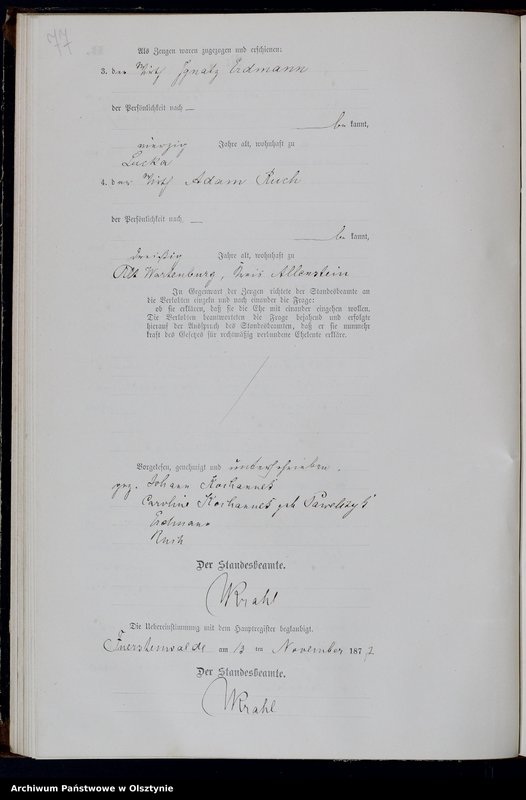 77
Als Zeugen waren zugezogen und erschienen:
3. der Wirth Ignatz Erdmann
der Persönlichkeit nach
be kannt,
vierzig Jahre alt, wohnhaft zu
Lucka
4. der Wirth Adam Ruch
der Persönlichkeit nach
be kannt,
dreißig Jahre alt, wohnhaft zu
Alt Wartenburg, Kreis Allenstein
In Gegenwart der Zeugen richtete der Standesbeamte an
die Verlobten einzeln und nach einander die Frage:
ob sie erklären, daß sie die Ehe mit einander eingehen wollen.
Die Verlobten beantworteten die Frage bejahend und erfolgte
hierauf der Ausspruch des Standesbeamten, daß er sie nunmehr
kraft des Gesetzes für rechtmäßig verbundene Eheleute erkläre.
Vorgelesen, genehmigt und unterschrieben.
gez. Johann Kochannek
Caroline Kochannek geb
Erdmann
Ruch
Der Standesbeamte.
Krahl
Die Uebereinstimmung mit dem Hauptregister beglaubigt.
Fuerstenwalde am 13 ten November 187
Der Standesbeamte.
Krahl
Archiwum Państwowe w Olsztynie